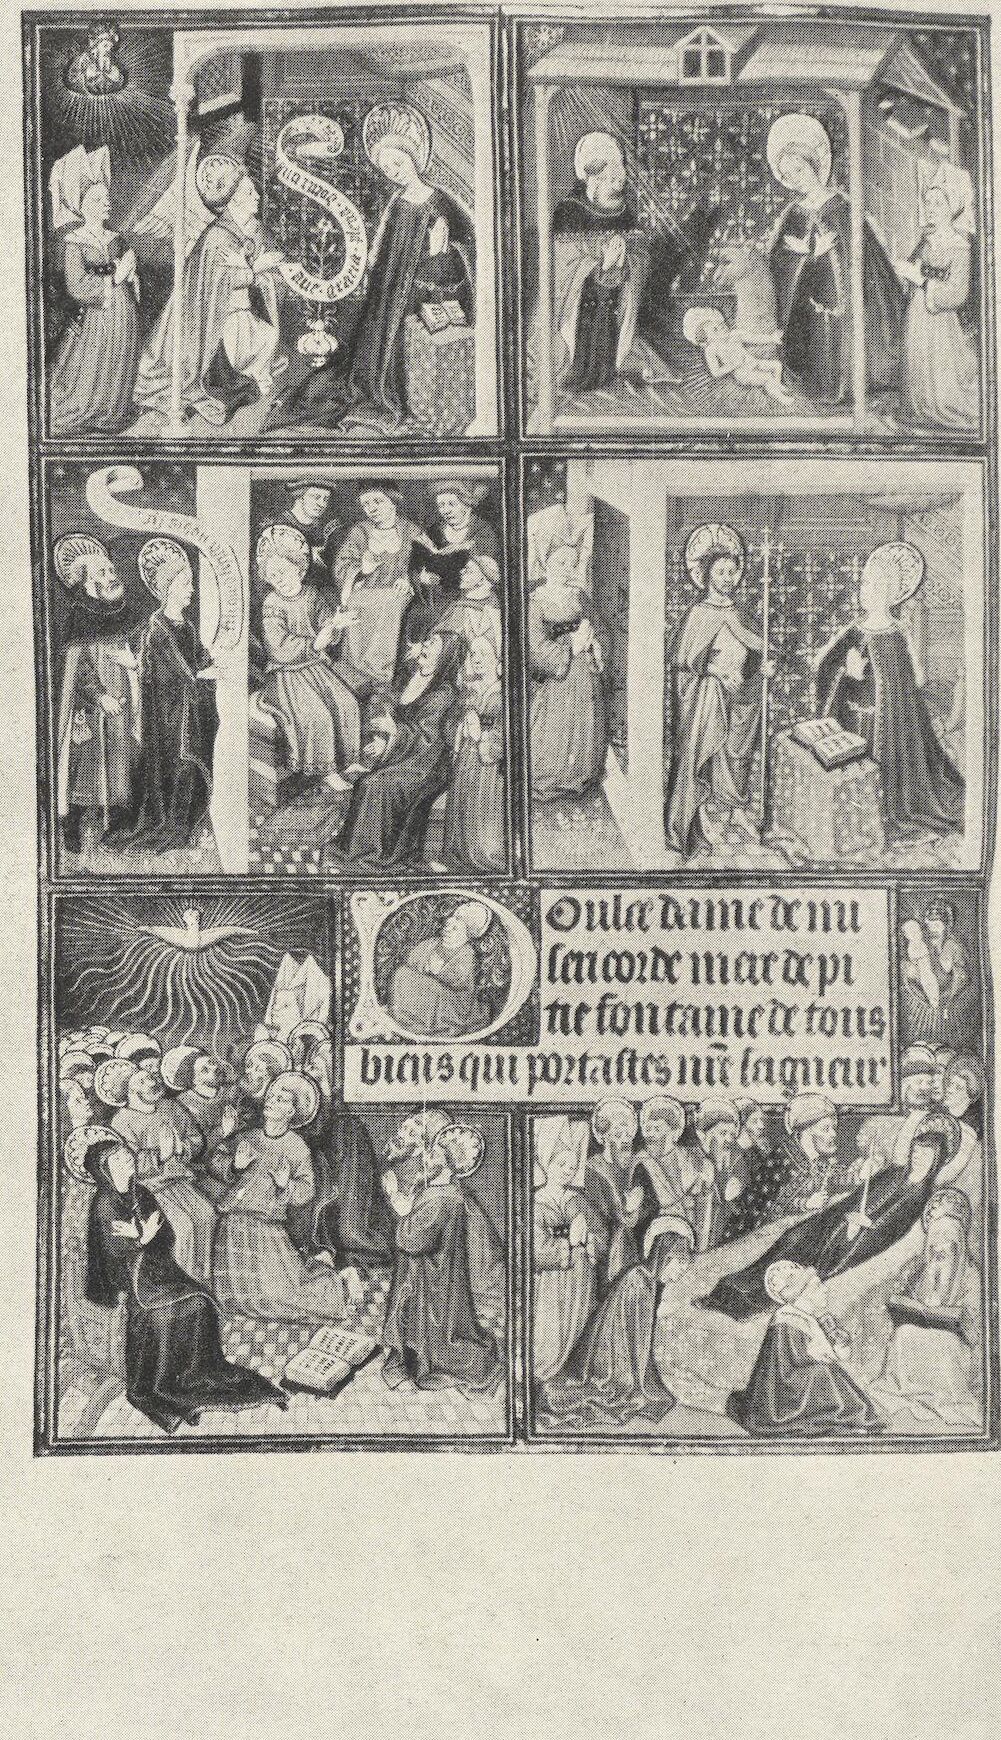 Aue gracia
DOulce dame de mi
sericorde mere de pi
tie fontaine de tous
biens qui portastes nr̄e seigneur